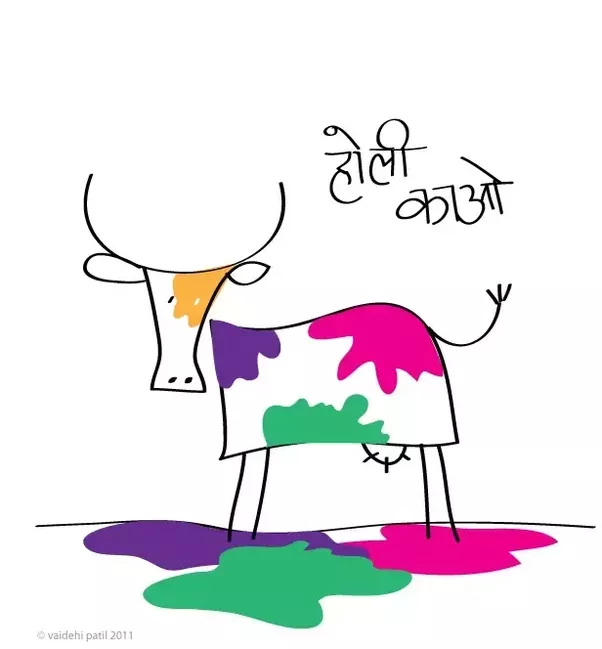 होली
काओ
© vaidehi patil 2011